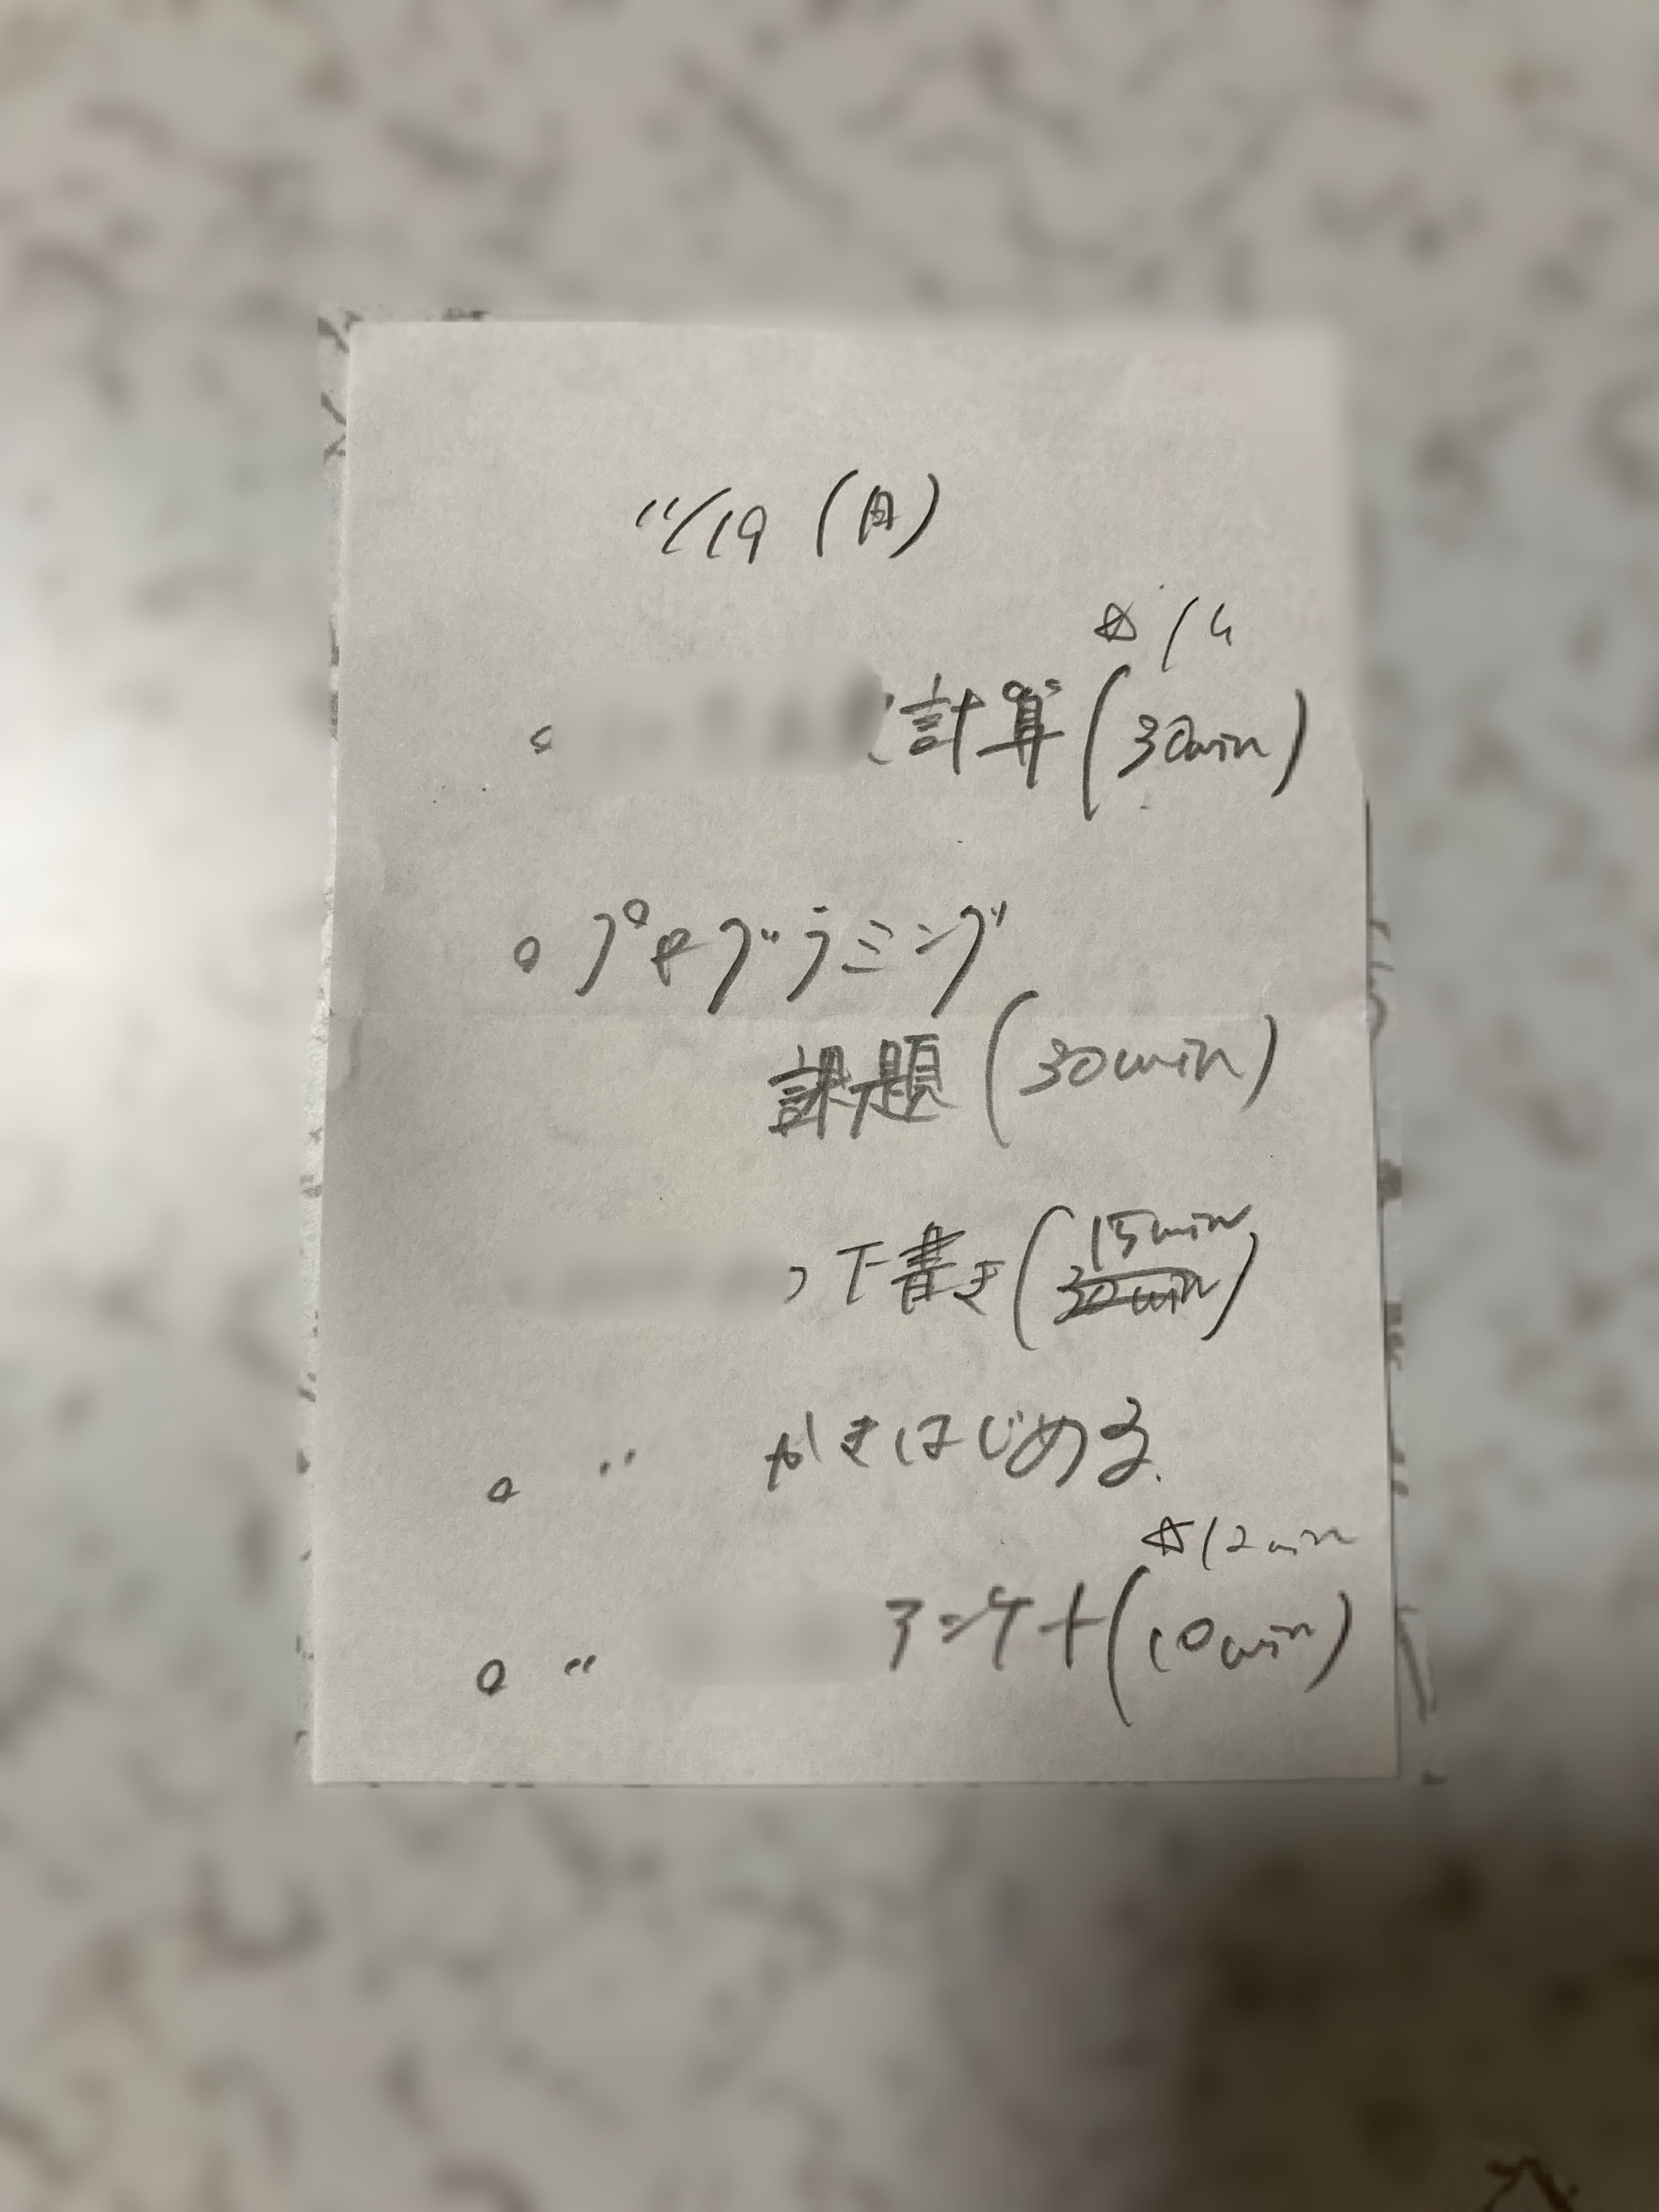 11/19 (月)
☆ 14
。 計算 (30min)
。プログラミング
課題 (30min)
下書き (15min
30min)
。 〃 かきはじめる.
☆12min
。 〃 アンケート (10min)